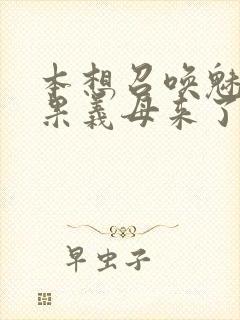 本想召唤魅
果义母来了
早虫子